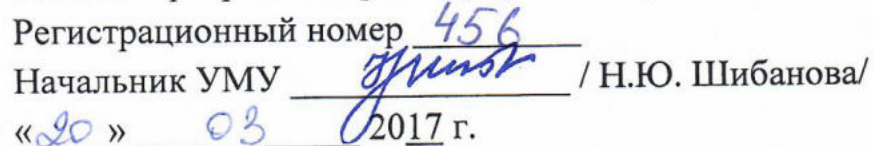 Регистрационный номер 456
Начальник УМУ / Н.Ю. Шибанова/
«20 » 03 2017 г.